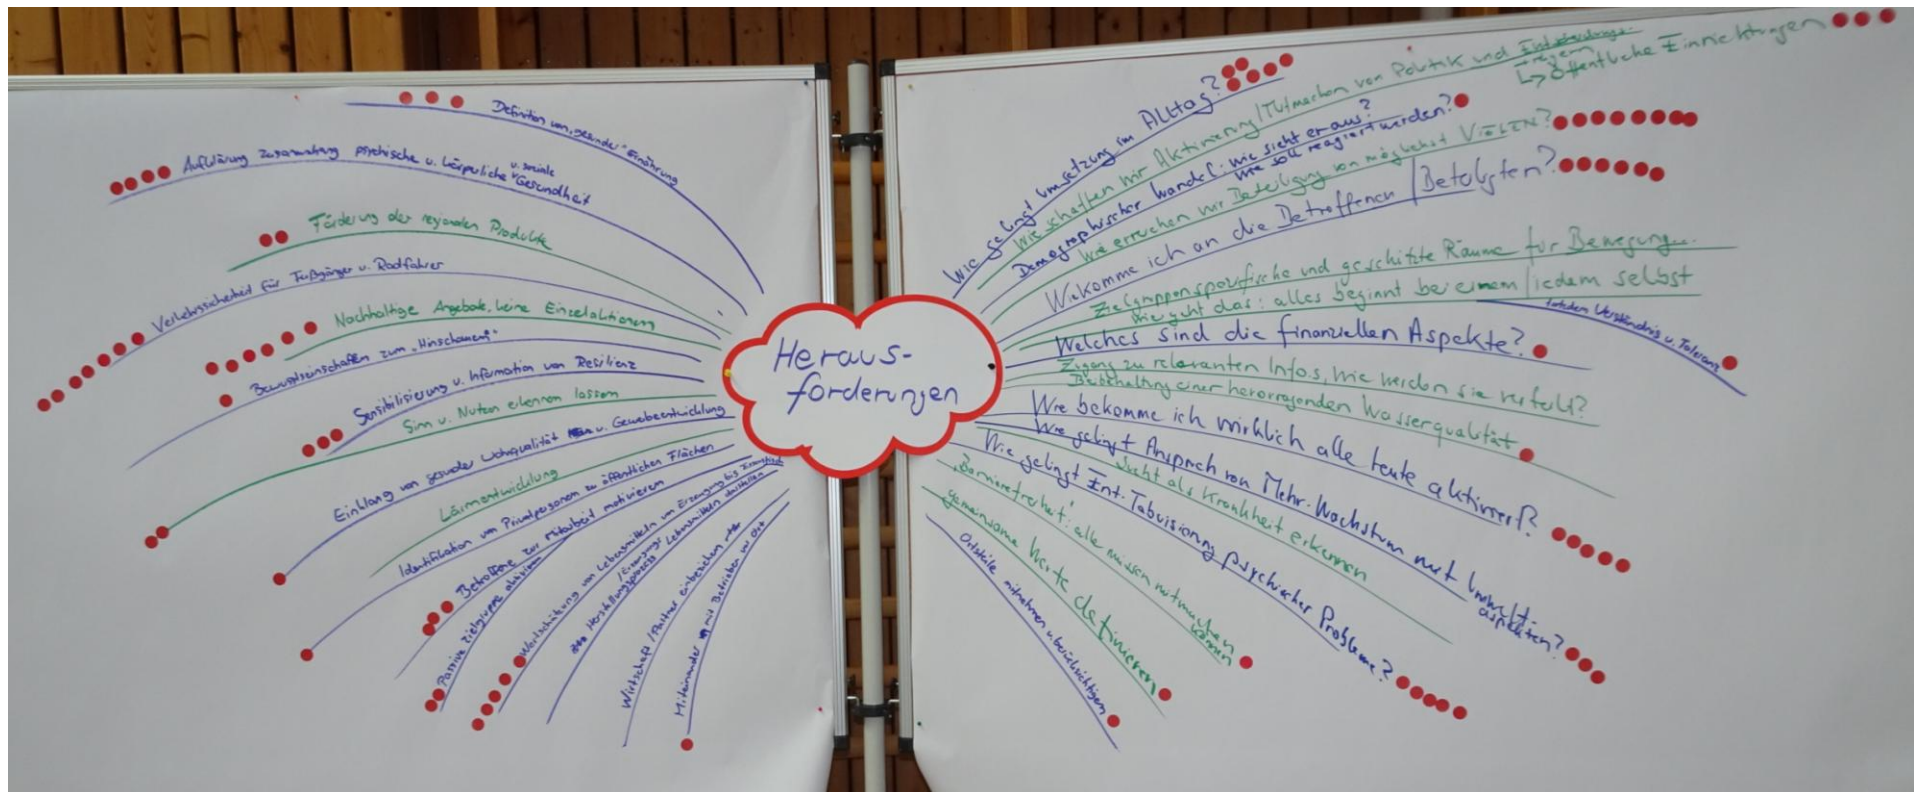 Heraus-
forderungen
Definition von „gesunder" Ernährung
Aufklärung Zusammenhang psychische u. körperliche u. soziale Gesundheit
Förderung der regionalen Produkte
Verkehrssicherheit für Fußgänger u. Radfahrer
Nachhaltige Angebote, keine Einzelaktionen
Bewusstsein schaffen zum „Hinschauen"
Sensibilisierung u. Information von Resilienz
Sinn u. Nutzen erkennen lassen
Einklang von gesunder Wohnqualität u. Gewerbeentwicklung
Lärmentwicklung
Identifikation von Privatpersonen zu öffentlichen Flächen
Betroffene zur Mitarbeit motivieren
Passive Zielgruppe aktivieren
Wertschätzung von Lebensmitteln von Erzeugung bis
Herstellungsprozess Lebensmitteln darstellen
Wirtschaft / Partner einbeziehen
Miteinander mit Betrieben vor Ort
Wie gelingt Umsetzung im Alltag?
Wie schaffen wir Aktivierung/Mitmachen von Politik und
↳ öffentliche Einrichtungen
Demographischer Wandel: wie sieht er aus?
wie soll reagiert werden?
Wie erreichen wir Beteiligung von möglichst VIELEN?
Wie komme ich an die Betroffenen / Beteiligten?
Zielgruppenspezifische und geschützte Räume für Bewegung
Wie geht das: alles beginnt bei einem / jedem selbst
Verständnis u. Toleranz
Welches sind die finanziellen Aspekte?
Zugang zu relevanten Infos, wie werden sie verteilt?
Beibehaltung einer hervorragenden Wasserqualität
Wie bekomme ich wirklich alle Leute aktiviert?
Wie gelingt Anspruch von Mehr-Wachstum mit Umwelt-
aspekten?
Sucht als Krankheit erkennen
Wie gelingt Ent-Tabuisierung psychischer Probleme?
„Barrierefreiheit": alle müssen mitmachen
können
gemeinsame Werte definieren
Ortsteile mitnehmen u. berücksichtigen